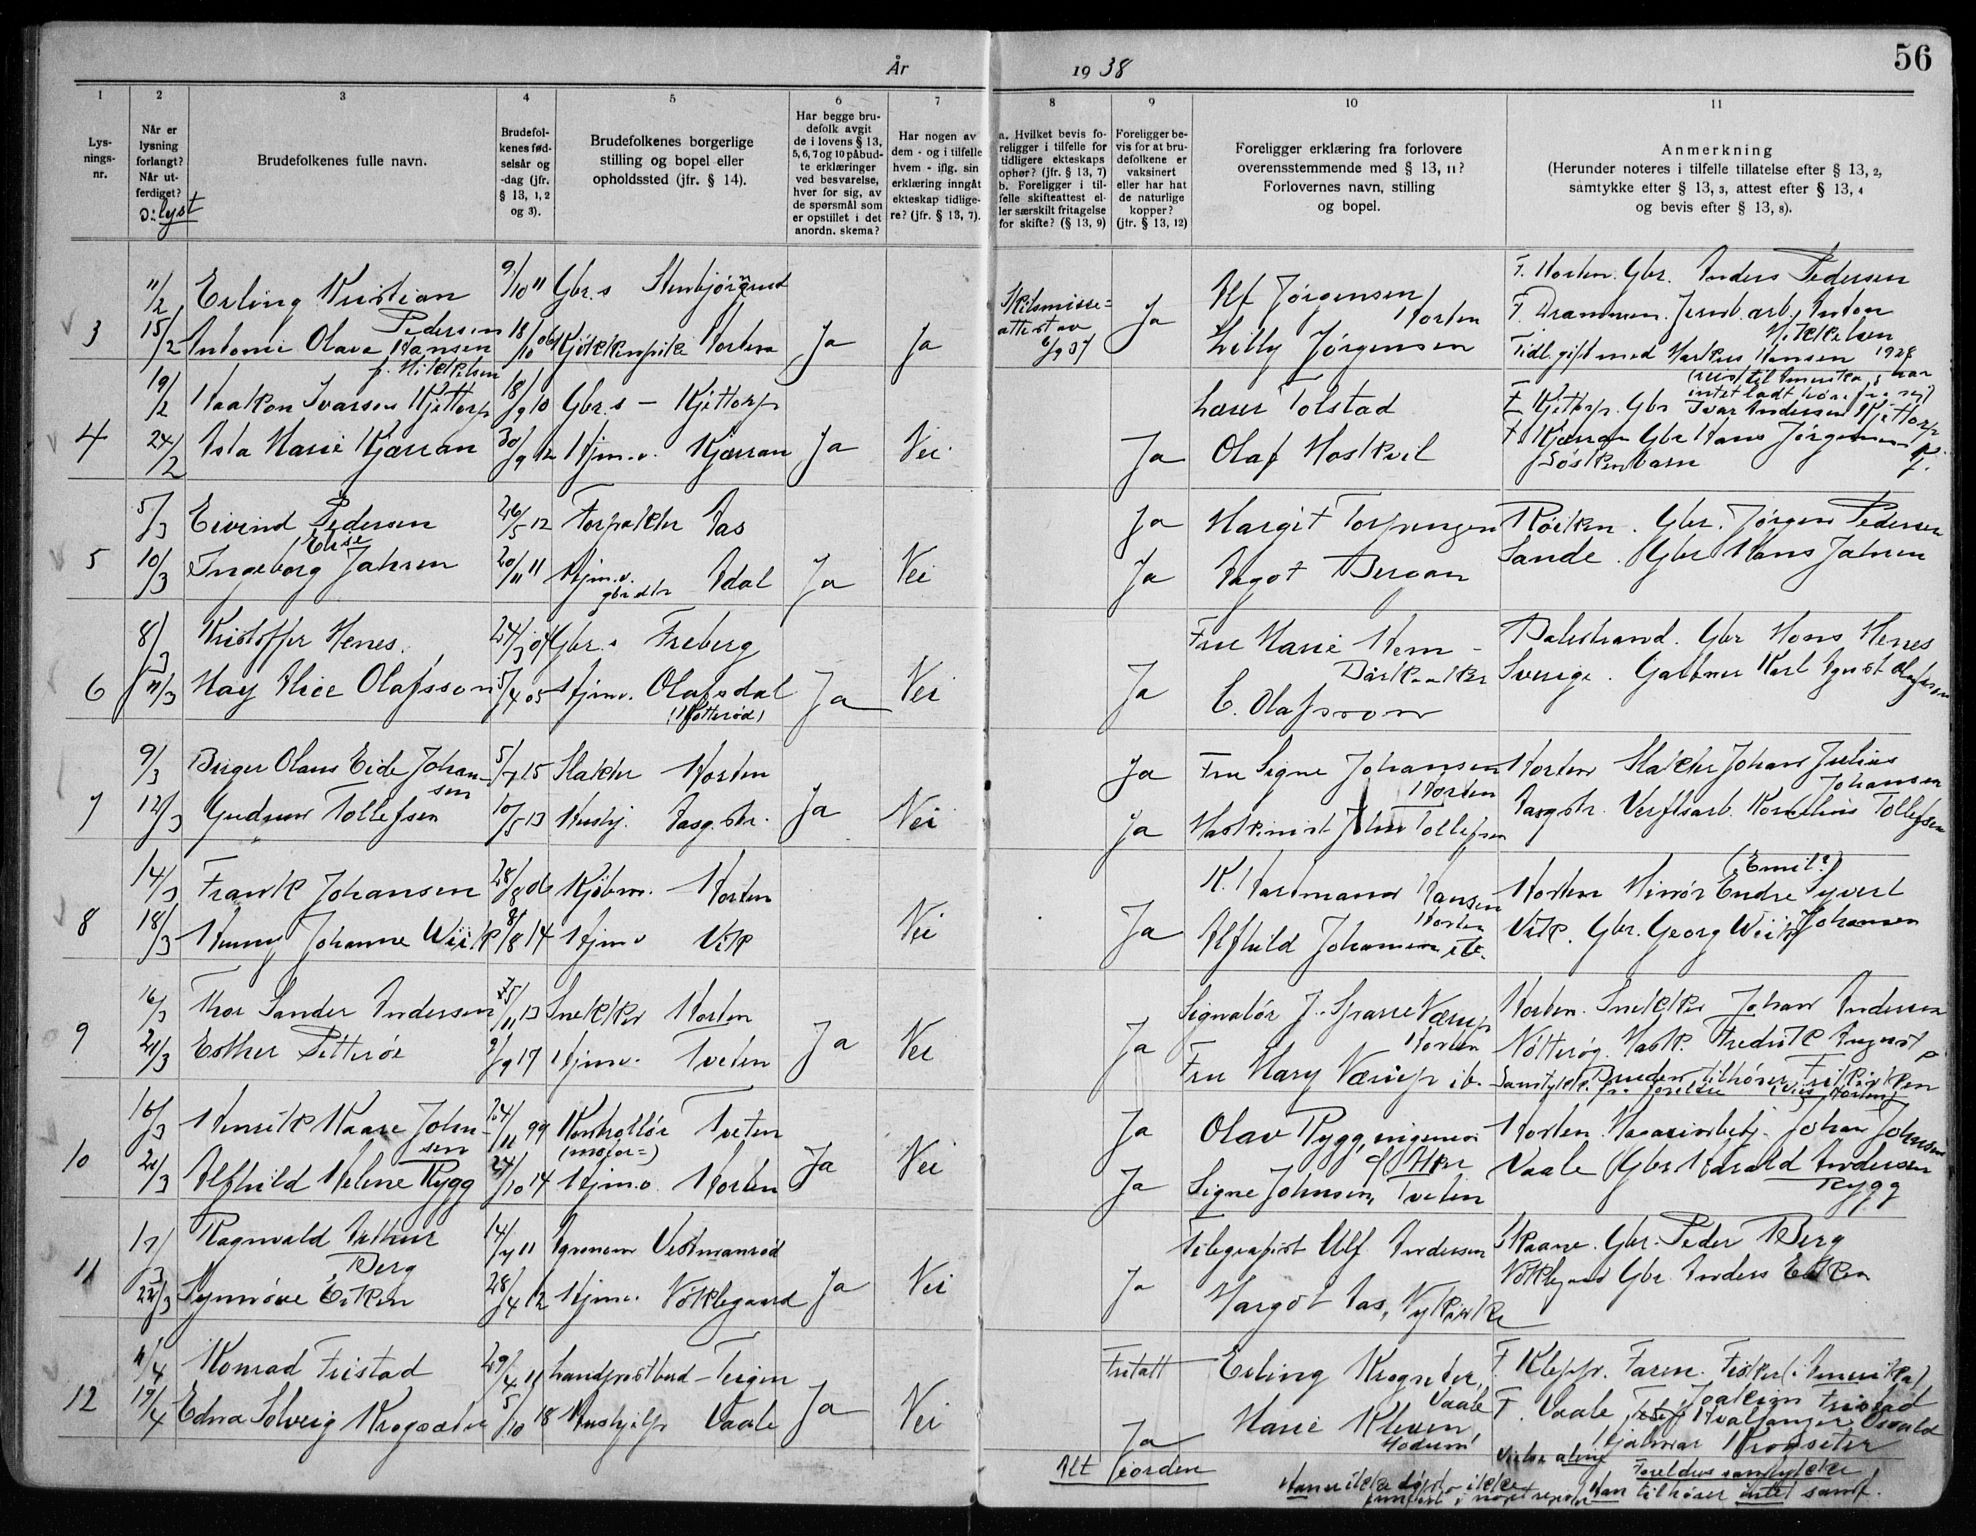 56
År 1938
1 2 3 4 5 6 7 8 9 10 11
Lys-
nings-
nr.
Når er
lysning
forlangt?
Når ut-
ferdiget?
ɔ: lyst
Brudefolkenes fulle navn.
Brudefol-
kenes fød-
selsår og
-dag (jfr.
§ 13, 1, 2
og 3).
Brudefolkenes borgerlige
stilling og bopel eller
opholdssted (jfr. § 14).
Har begge bru-
defolk avgit
de i lovens § 13,
5, 6, 7 og 10 påbud-
te erklæringer
ved besvarelse,
hver for sig, av
de spørsmål som
er opstillet i det
anordn. skema?
Har nogen av
dem - og i tilfelle
hvem - iflg. sin
erklæring inngått
ekteskap tidlige-
re? (jfr. § 13, 7).
a. Hvilket bevis fo-
religger i tilfelle for
tidligere ekteskaps
ophør? (jfr. § 13, 7)
b. Foreligger i til-
felle skifteattest el-
ler særskilt fritagelse
for skifte? (§ 13, 9)
Foreligger be-
vis for at bru-
defolkene er
vaksinert
eller har hat
de naturlige
kopper?
(jfr. § 13, 12)
Foreligger erklæring fra forlovere
overensstemmende med § 13, 11?
Forlovernes navn, stilling
og bopel.
Anmerkning
(Herunder noteres i tilfelle tillatelse efter § 13, 2,
samtykke efter § 13, 3, attest efter § 13, 4
og bevis efter § 13, 8).
11/2 Erling Kristian Pedersen 9/10 11 Gbr.s Ja Alf Jørgensen Horten F. Horten. Gbr. Anders Pedersen
3 15/2 Antonie Olava Hansen f. Mikkelsen 18/10 06 Kjøkkenpike Horten Ja Ja Skilsmisse-
attest av 6/9 37 Lilly Jørgensen F. Drammen. Jernb.arb. Anton Mikkelsen
Tidl. gift med Markus Hansen 1928
(reist til Amerika, har
intet ladt høre fra sig)
19/2 Haakon Ivarsen Kjettorp 18/9 10 Gbr.s - Kjettorp Tolstad F. Kjettorp. Gbr Ivar Andersen Kjettorp
4 24/2 Asta Marie Kjærran 30/9 12 Hjm.v. Kjærran Ja Nei Ja Olaf Moskvil F. Kjærran Gbr Hans Jørgensen Kj.
Søskenbarn
5/3 Eivind Pedersen 26/5 12 Forpakter Aas Ja Margit Torgersen Røiken. Gbr. Jørgen Pedersen
5 10/3 Ingeborg Elise Jahren 20/11 11 Hjm.v. gbr.dtr Adal Ja Nei Ja Aagot Bergan Sande. Gbr Hans Jahren
8/3 Kristoffer Menes. 24/3 04 Gbr.s Freberg Fru Marie Hem - Balestrand. Gbr Mons Menes
6 11/3 May Alice Olafsson 5/4 05 Hjmv. Olafsdal (Kotterød) Ja Nei Ja C. Olafsson Sverige. Gartner Karl August Olafsson
9/3 Birger Olaus Eide Johan-
sen 5/7 15 Slakter Horten Ja Fru Signe Johansen Horten Horten Slakter Johan Julius Johansen
7 12/3 Gudrun Tollefsen 10/5 13 Hushj. Aasg.str. Ja Nei Ja Maskinist John Tollefsen Aasgstr. Verftsarb. Kornelius Tollefsen
14/3 Frank Johansen 28/8 06 Kjøbm. Horten K. Hartmann Hansen Horten Horten Minør Endre (Emil?) Syvert Johansen
8 18/3 Henny Johanne Wiik 8/8 14 Hjmv Vik Nei Ja Alfhild Johansen Vik. Gbr. Georg Wiik
16/3 Thor Sander Andersen /11 13 Snekker Horten Signalør J. Sparre Værup Horten Horten. Snekker Johan Andersen
9 21/3 Esther Petterøe 9/9 17 Hjmv. Tveten Ja Nei Ja Fru Mary Værup ib. Nøtterøy. Mask. Fredrik August P
Samtykke fra foreldre Bruden tilhører Frikirken (vies Horten)
16/3 Henrik Kaare John-
sen 24/11 99 Kontrollør (motor=) Tveten Ja Olav Rygg, ingeniør Horten. Magasinbetj. Johan Johnsen
10 21/3 Alfhild Helene Rygg 24/10 14 Hjm.v. Horten Ja Nei Ja Signe Johnsen, Tveten Vaale Gbr Harald Andersen Rygg
17/3 Ragnvald Arthur Berg 14/7 11 Agronom Vestmannrød Telegrafist Ulf Andersen Skaane. Gbr. Peder Berg
11 22/3 Synnøve Eiken 28/4 12 Hjmv. Viklegaard Ja Nei Ja Margot Aas, Nykirke Viklegaard Gbr. Anders Eiken
11/4 Konrad Fristad 29/4 11 Landpostbud - Teigen Fritatt Erling Krogseter, Vaale F. Klepp. Faren. Fisker (i Amerika)
Joakim Fristad
12 19/4 Edna Solveig Krogseter 5/10 18 Hushjelp Vaale Ja Nei Ja Marie Kleven, Modum F. Vaale, Hvalfanger Osvald
Hjalmar Krogseter
Alt iorden
Foreldres samtykke
Han er ikke døpt
Han tilhører intet samf.